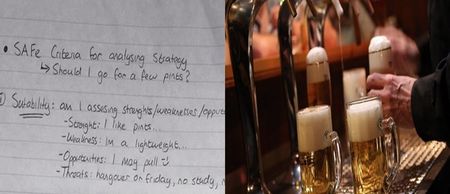 • SAFe Criteria for analysing Strategy
↳ Should I go for a few pints?
Suitability: am I assesing strenghts/weaknesses/opportu
- Strenght: I like pints...
- Weakness: Im a lightweight...
- Opportunities: I may pull
- Threats: hangover or friday, no study,